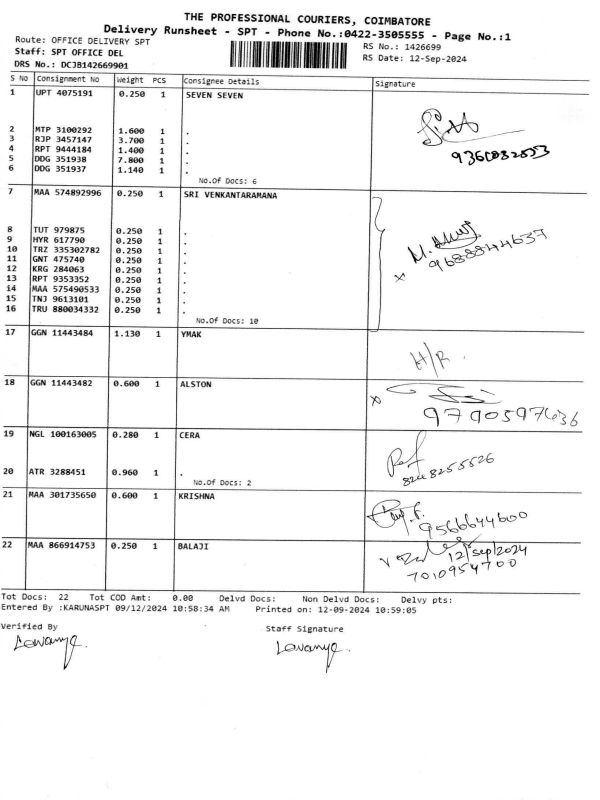 THE PROFESSIONAL COURIERS, COIMBATORE
Delivery Runsheet - SPT - Phone No.:0422-3505555 - Page No.:1
Route: OFFICE DELIVERY SPT RS No.: 1426699
Staff: SPT OFFICE DEL RS Date: 12-Sep-2024
DRS No.: DCJB142669901
S No Consignment No Weight PCS Consignee Details Signature
1 UPT 4075191 0.250 1 SEVEN SEVEN
2 MTP 3100292 1.600 1 .
3 RJP 3457147 3.700 1 .
4 RPT 9444184 1.400 1 .
5 DDG 351938 7.800 1 .
6 DDG 351937 1.140 1 .
No.Of Docs: 6
7 MAA 574892996 0.250 1 SRI VENKANTARAMANA
8 TUT 979875 0.250 1 .
9 HYR 617790 0.250 1 .
10 TRZ 335302782 0.250 1 .
11 GNT 475740 0.250 1 .
12 KRG 284063 0.250 1 .
13 RPT 9353352 0.250 1 .
14 MAA 575490533 0.250 1 .
15 TNJ 9613101 0.250 1 .
16 TRU 880034332 0.250 1 .
No.Of Docs: 10
9688844637
17 GGN 11443484 1.130 1 YMAK
H/R
18 GGN 11443482 0.600 1 ALSTON
9790597636
19 NGL 100163005 0.280 1 CERA
20 ATR 3288451 0.960 1 .
No.Of Docs: 2
8248255526
21 MAA 301735650 0.600 1 KRISHNA
9566644600
22 MAA 866914753 0.250 1 BALAJI
12/sep/2024
7010954700
Tot Docs: 22 Tot COD Amt: 0.00 Delvd Docs: Non Delvd Docs: Delvy pts:
Entered By :KARUNASPT 09/12/2024 10:58:34 AM Printed on: 12-09-2024 10:59:05
Verified By Staff Signature
Lavanya. Lavanya.